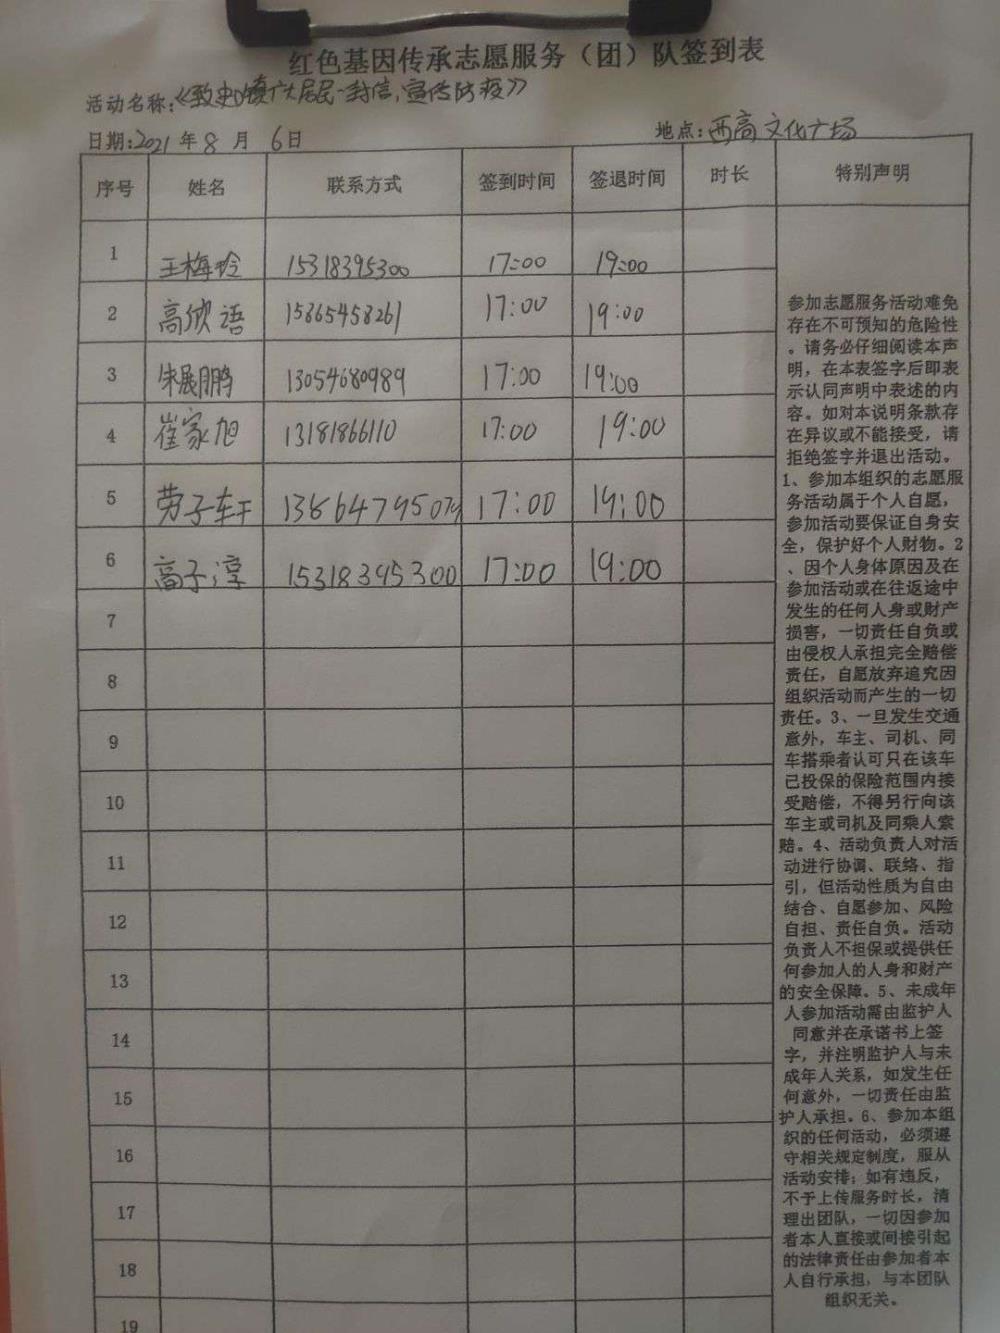 红色基因传承志愿服务（团）队签到表
活动名称：《致史口镇广大居民一封信，宣传防疫》
日期:2021年8月6日 地点:西高文化广场
序号 姓名 联系方式 签到时间 签退时间 时长 特别声明
1 王梅玲 15318395300 17:00 19:00
2 高欣语 15865458261 17:00 19:00
3 朱展鹏 13054680989 17:00 19:00
4 崔家旭 13181866110 17:00 19:00
5 劳子轩 13864795079 17:00 19:00
6 高子淳 15318395300 17:00 19:00
7
8
9
10
11
12
13
14
15
16
17
18
19
参加志愿服务活动难免
存在不可预知的危险性
。请务必仔细阅读本声
明，在本表签字后即表
示认同声明中表述的内
容。如对本说明条款存
在异议或不能接受，请
拒绝签字并退出活动。
1、参加本组织的志愿服
务活动属于个人自愿，
参加活动要保证自身安
全，保护好个人财物。2
、因个人身体原因及在
参加活动或在往返途中
发生的任何人身或财产
损害，一切责任自负或
由侵权人承担完全赔偿
责任，自愿放弃追究因
组织活动而产生的一切
责任。3、一旦发生交通
意外，车主、司机、同
车搭乘者认可只在该车
已投保的保险范围内接
受赔偿，不得另行向该
车主或司机及同乘人索
赔。4、活动负责人对活
动进行协调、联络、指
引，但活动性质为自由
结合、自愿参加、风险
自担、责任自负。活动
负责人不担保或提供任
何参加人的人身和财产
的安全保障。5、未成年
人参加活动需由监护人
同意并在承诺书上签
字，并注明监护人与未
成年人关系，如发生任
何意外，一切责任由监
护人承担。6、参加本组
织的任何活动，必须遵
守相关规定制度，服从
活动安排；如有违反，
不予上传服务时长，清
理出团队，一切因参加
者本人直接或间接引起
的法律责任由参加者本
人自行承担，与本团队
组织无关。